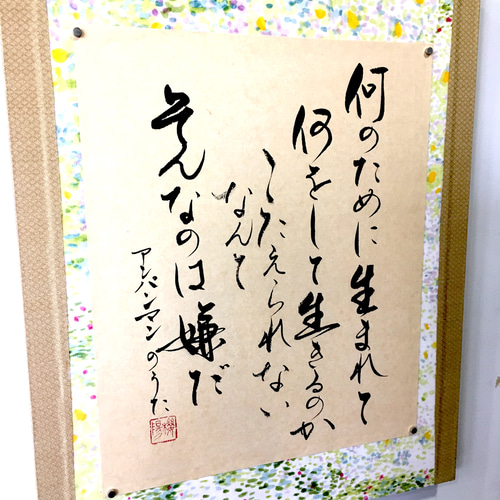 何のために生まれて
何をして生きるのか
こたえられない
なんて
そんなのは嫌だ
アンパンマンのうた